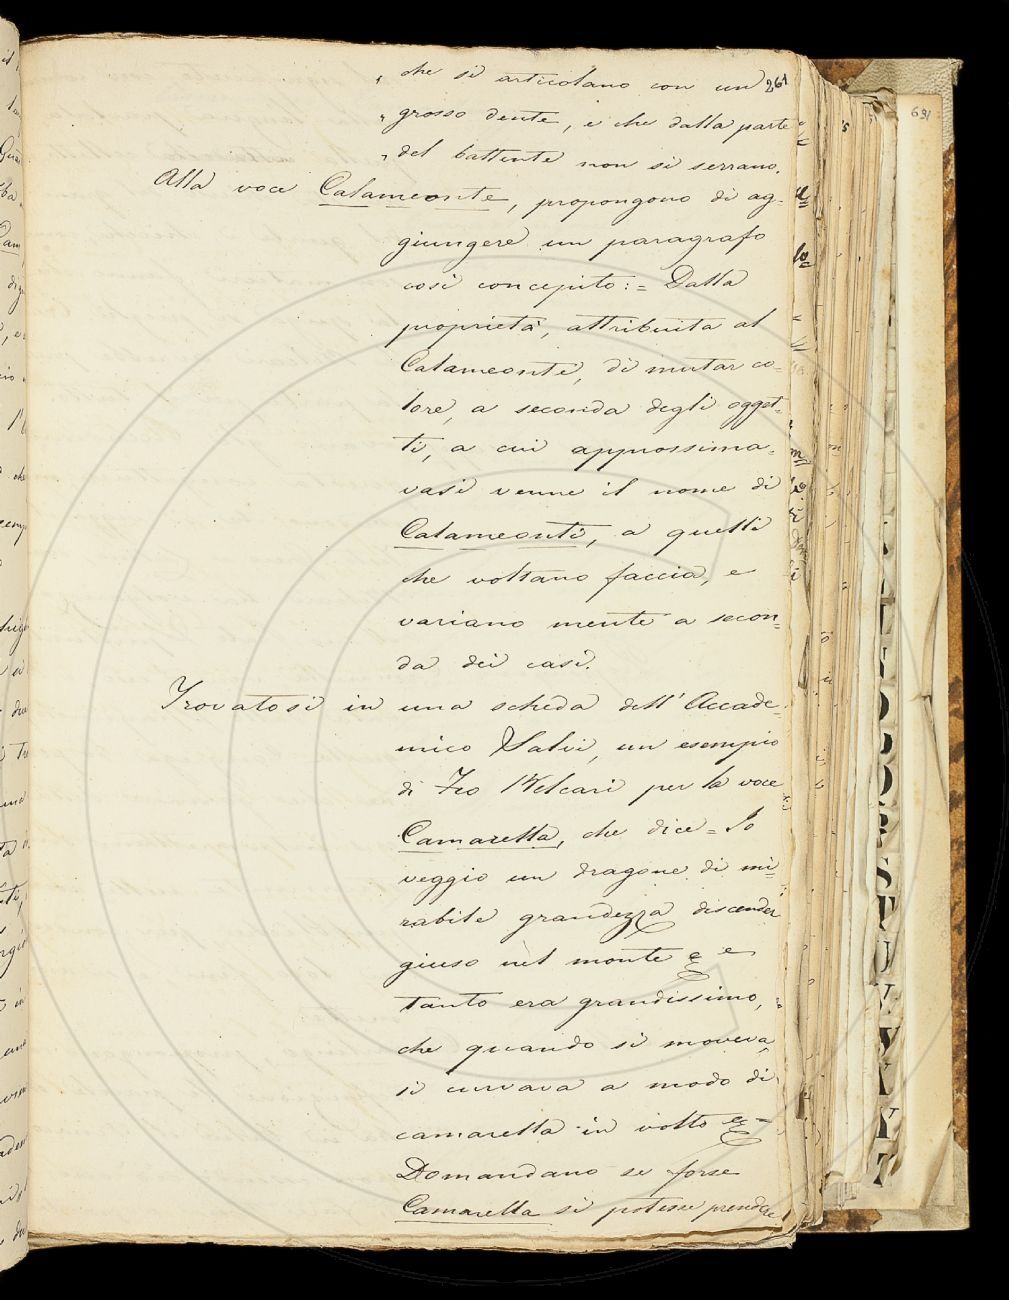 261
„ che si articolano con un
„ grosso dente, e che dalla parte
„ del battente non si serrano.
Alla voce Calameonte, propongono di ag-
giungere un paragrafo
così concepito: = Dalla
proprietà, attribuita al
Calameonte, di mutar co-
lore, a seconda degli ogget-
ti, a cui approssima-
vasi venne il nome di
Calameonti, a quelli
che voltano faccia, e
variano mente a secon-
da dei casi.
Trovatosi in una scheda dell' Accade-
mico Salvi, un esempio
di Feo Belcari per la voce
Camarella, che dice = Io
veggio un dragone di mi-
rabile grandezza discender
giuso nel monte & e
tanto era grandissimo,
che quando si moveva,
si curvava a modo di
camarella in volto & =
Domandano se forse
Camarella si potesse prendere
691
S
T
U
V
Y
T